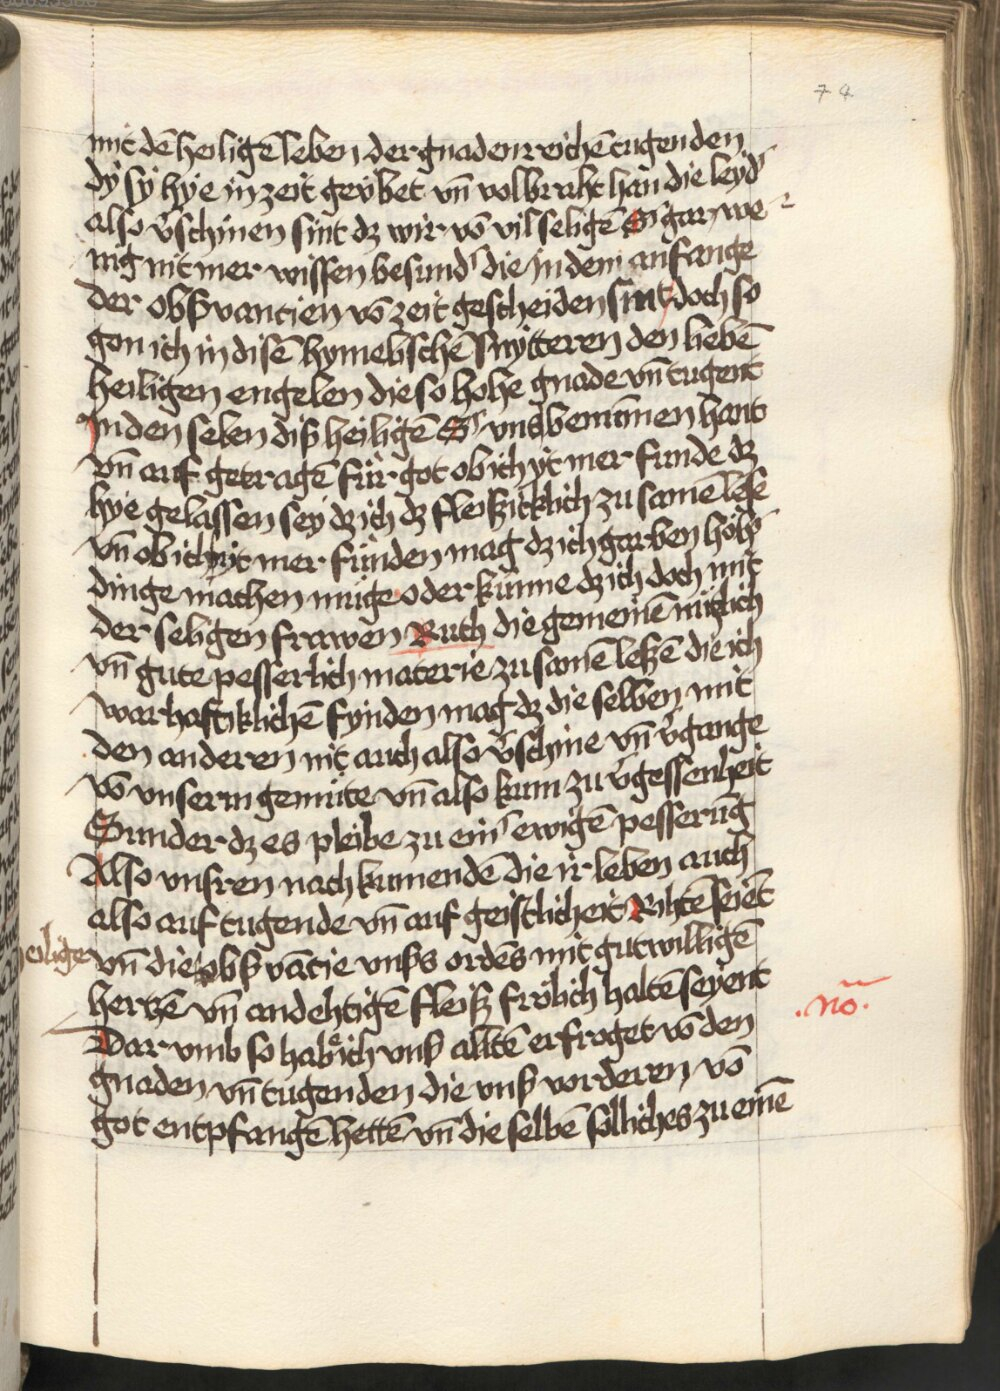 74
mit dē heiligē leben der gnadenreichē tugenden
dÿ sÿ hÿe in zeit geübet vn̄ volbraht han die leyd᾽
also v᾽schinen sint dz wir vō vil seligē S᾽ gar we
nig nit mer wissen besund᾽ die in dem anfange
der obß vancien vō zeit gescheiden sint doch so
gon ich in disē hymelischē snÿtteren den liebē
heiligen engelen die so hohe gnade vn̄ tugent
in den selen diß heiligē S᾽ vns benūmen hant
vn̄ auf getragē für got ob ich ÿt mer funde dz
hÿe gelassen sey dz ich dz fleißicklich zu samē lese
vn̄ ob ich ÿt mer fünden mag dz ich garben
dinge machen müge oder künne dz ich doch mit
der seligen frawen Ruth die gemeinē nüczlich
vn̄ gute pesserlich materie zu samē leßē die ich
warhaftiklichē fÿnden mag dz die selben mit
den anderen nit auch also v᾽schine vn̄ v᾽gange
vō vnserm gemüte vn̄ also kum zu v᾽gessenheit
Sunder dz es pleibe zu ein᾽ ewigē pesserūg
Also vnsren nach kumendē die ir leben auch
also auf tugende vn̄ auf geistlicheit Rihtē seiēt
heilige vn̄ die obß vācie vnßs ordēs mit gutwilligē
herczē vn̄ andehtigē fleiß frölich haltē seyent
.nō.
Dar vmb so habe ich vnß alltē erfroget vō den
gnaden vn̄ tugenden die vnß vorderen vō
got entpfangē hettē vn̄ die selbē solliches zu einē